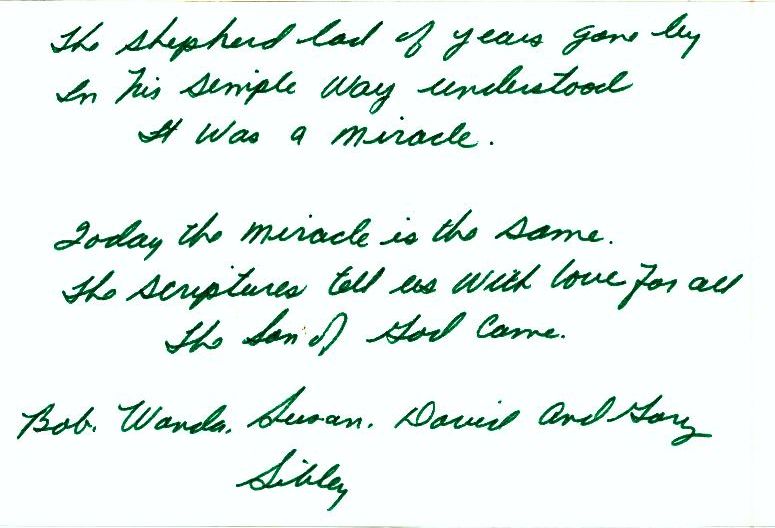 The shepherd lad of years gone by
In his simple way understood
It was a miracle.
Today the miracle is the same.
The scriptures tell us with love for all
The Son of God came.
Bob. Wanda. Susan. David and Gary
Sibley